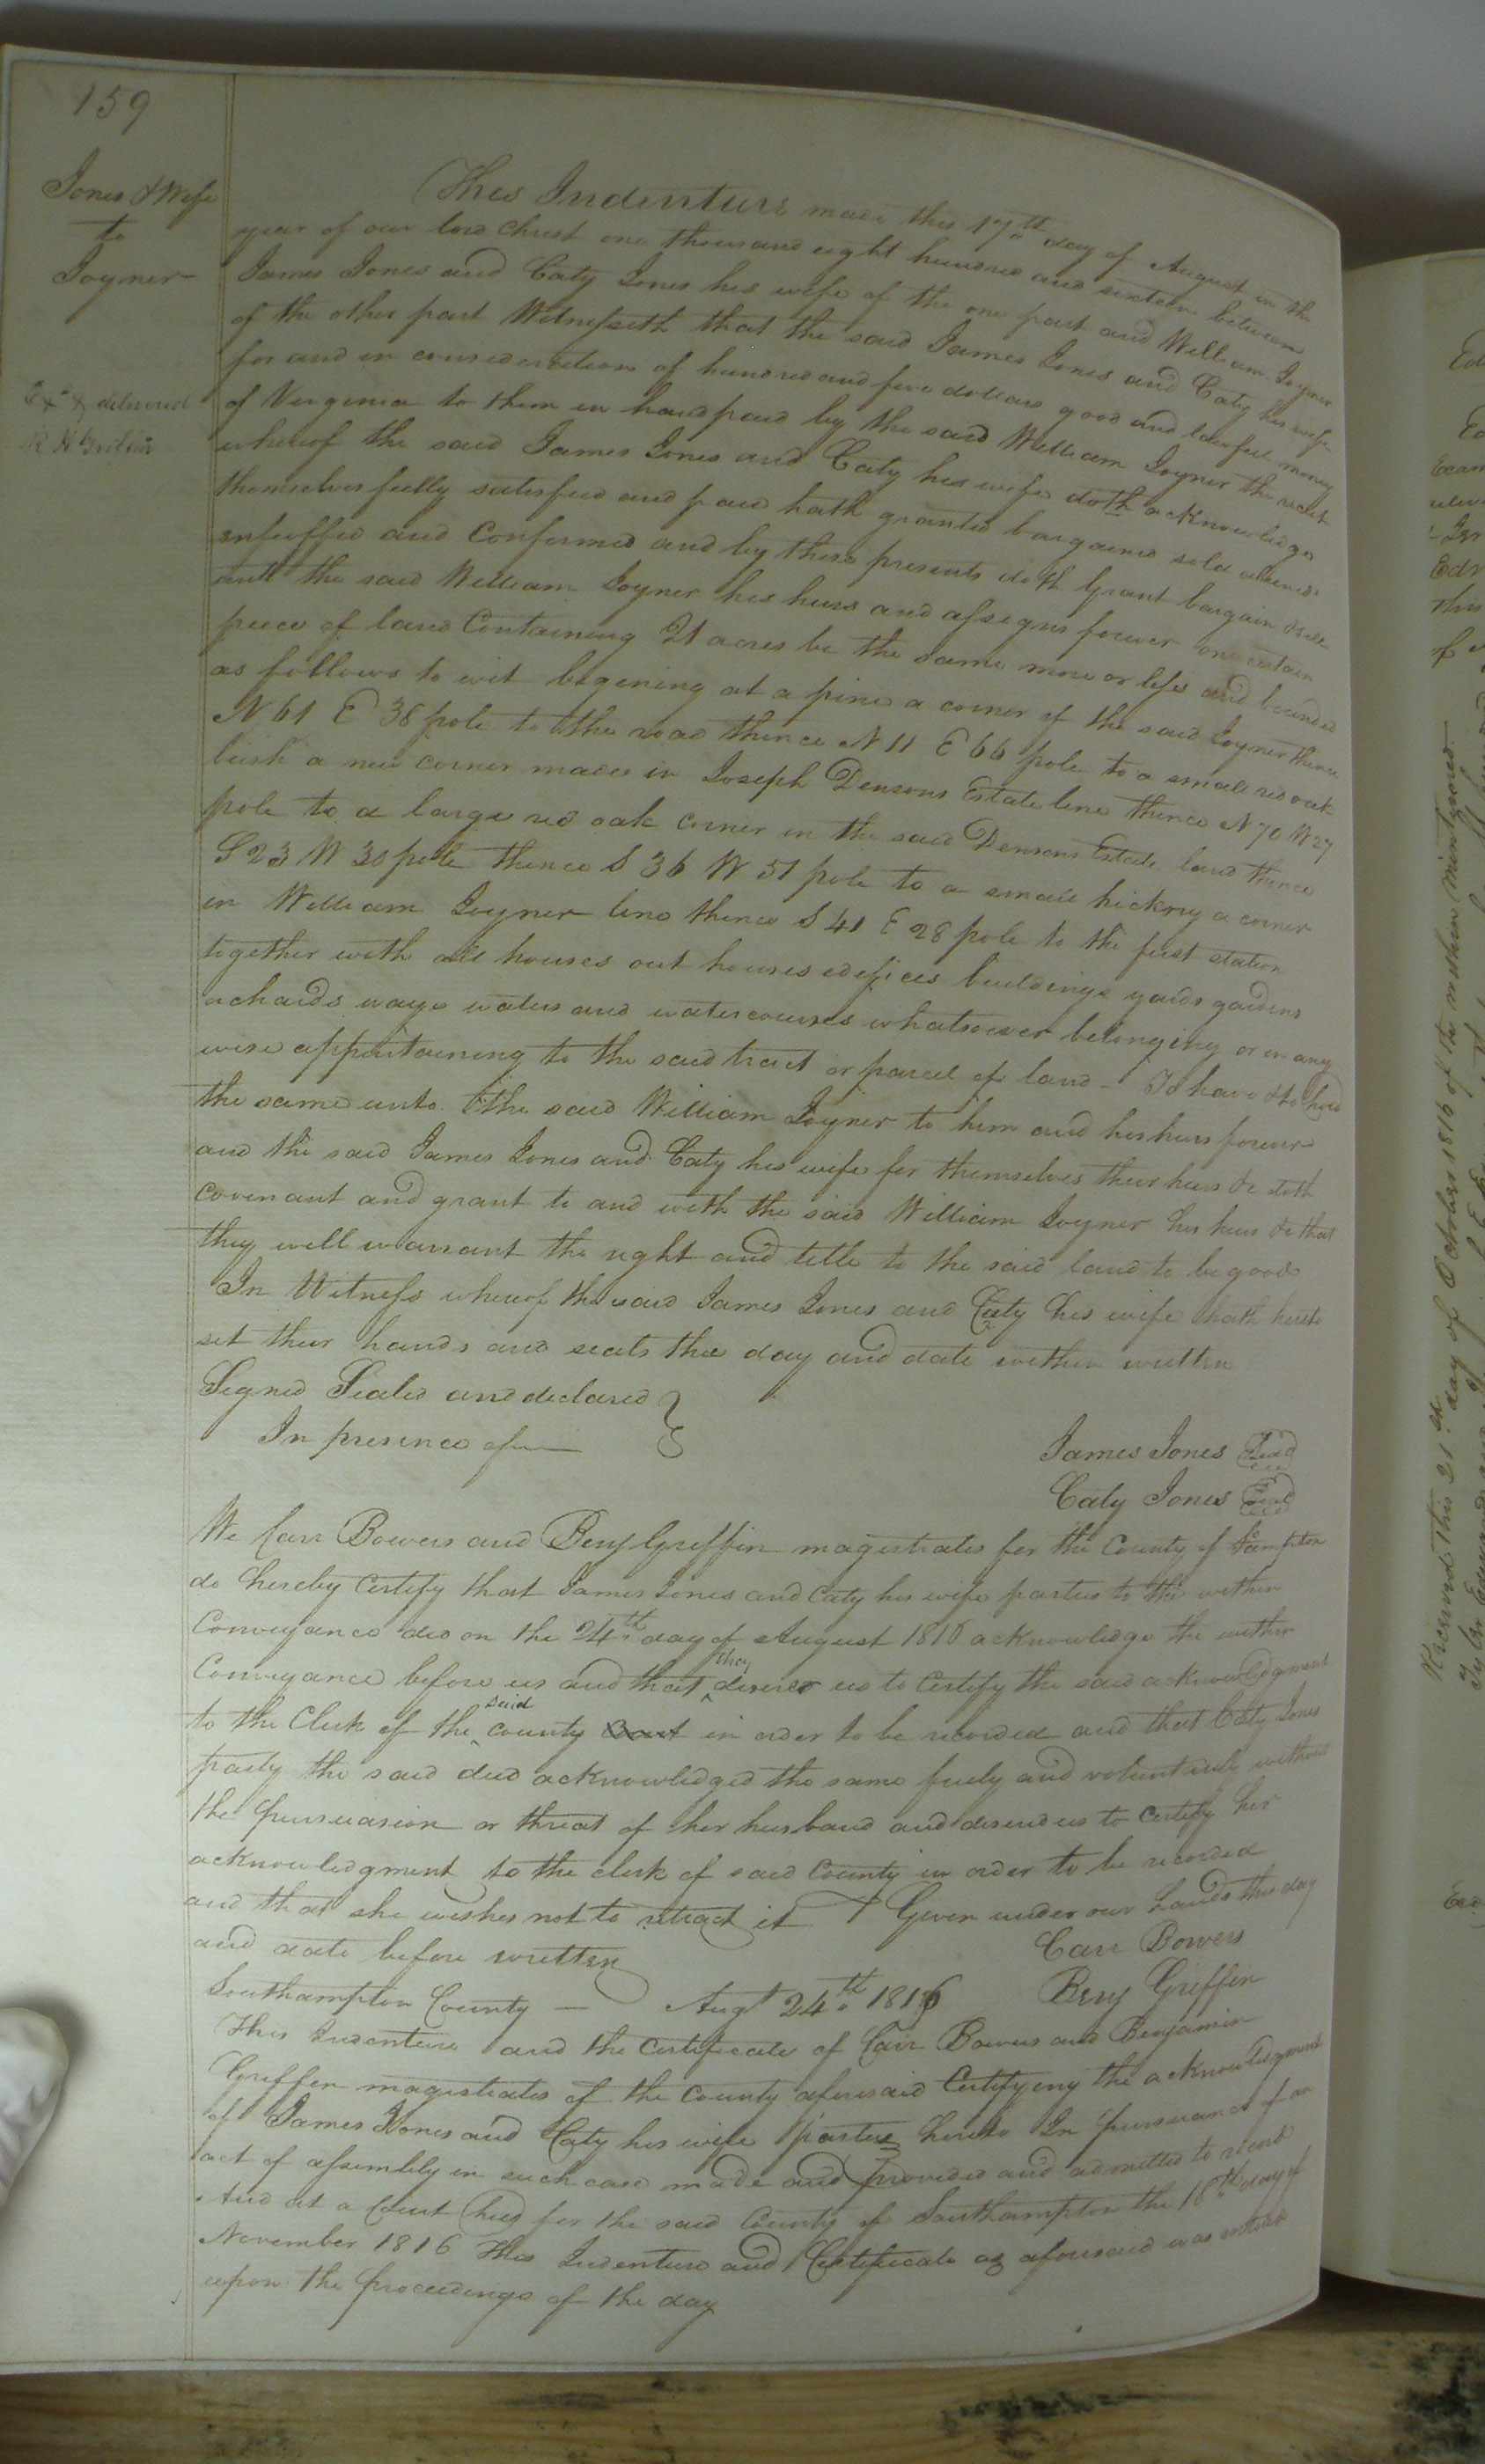 159
Jones & Wife
to
Joyner
Exd & delivered
R H Griffin
This Indenture made this 17th day of August in the
year of our lord Christ one thousand eight hundred and sixteen between
James Jones and Caty Jones his wife of the one part and William Joyner
of the other part Witnesseth that the said James Jones and Caty his wife
for and in consideration of hundred and five dollars good and lawful money
of Virginia to them in hand paid by the said William Joyner the receit
whereof the said James Jones and Caty his wife doth acknowledge
themselves fully satisfied and paid hath granted bargained sold aliened
enfeoffed and Confirmed and by these presents doth Grant bargain & sell
unto the said William Joyner his heirs and assigns forever one certain
peece of land Containing 21 acres be the same more or less and bounded
as follows to wit begining at a pine a corner of the said Joyner thence
N 61 E 38 pole to the road thence N 11 E 66 pole to a small red oak
bush a new corner made in Joseph Densons Estate line thence N 70 W 27
pole to a large red oak corner in the said Densons Estate land thence
S 23 W 30 pole thence S 36 W 51 pole to a small hickry a corner
in William Joyner line thence S 41 E 28 pole to the first station
together with all houses out houses edifices buildings yards gardens
orchards ways waters and watercourses whatsoever belonging or in any
wise appertaining to the said tract or parcel of land - To have & to hold
the same unto the said William Joyner to him and his heirs forever
and the said James Jones and Caty his wife for themselves their heirs &c doth
covenant and grant to and with the said William Joyner his heirs &c that
they will warrant the right and title to the said land to be good
In Witness whereof the said James Jones and Caty his wife hath hereto
set their hands and seals the day and date within written
Signed Sealed and declared
In presence of
James Jones Seal
Caty Jones Seal
We Carr Bowers and Benj Griffin magistrates for the County of So hampton
do hereby Certify that James Jones and Caty his wife parties to the within
Conveyance did on the 24th day of August 1816 acknowledge the within
Conveyance before us and that they desired us to Certify the said acknowledgment
to the Clerk of the said county Court in order to be recorded and that Caty Jones
party the said deed acknowledged the same freely and voluntarily without
the persuasion or threat of her husband and desired us to Certify her
acknowledgment to the clerk of said County in order to be recorded
and that she wishes not to retract it Given under our hands this day
and date before written
Carr Bowers
Benj Griffin
Southampton County - Augt 24th 1816
This Indenture and the Certificate of Carr Bowers and Benjamin
Griffin magistrates of the County aforesaid Certifying the acknowledgment
of James Jones and Caty his wife parties hereto In pursuance of an
act of assembly in such case made and provided and admitted to record
And at a Court held for the said County of Southampton the 18th day of
November 1816 This Indenture and Certificate as aforesaid was entered
upon the proceedings of the day
Received this 21st day of October 1816 of the within mentioned